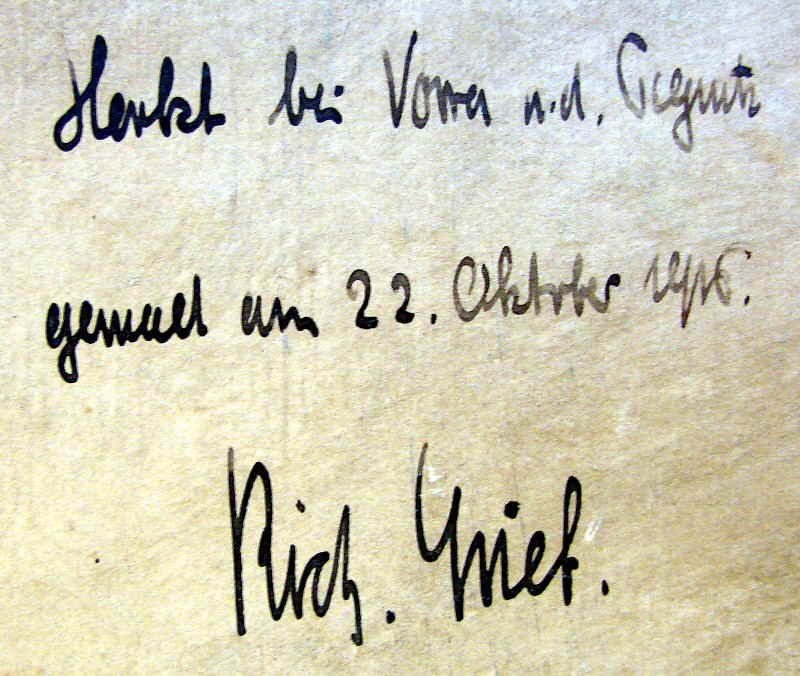 Herbst bei Vorra a.d. Pegnitz
gemalt am 22. Oktober
Rich.